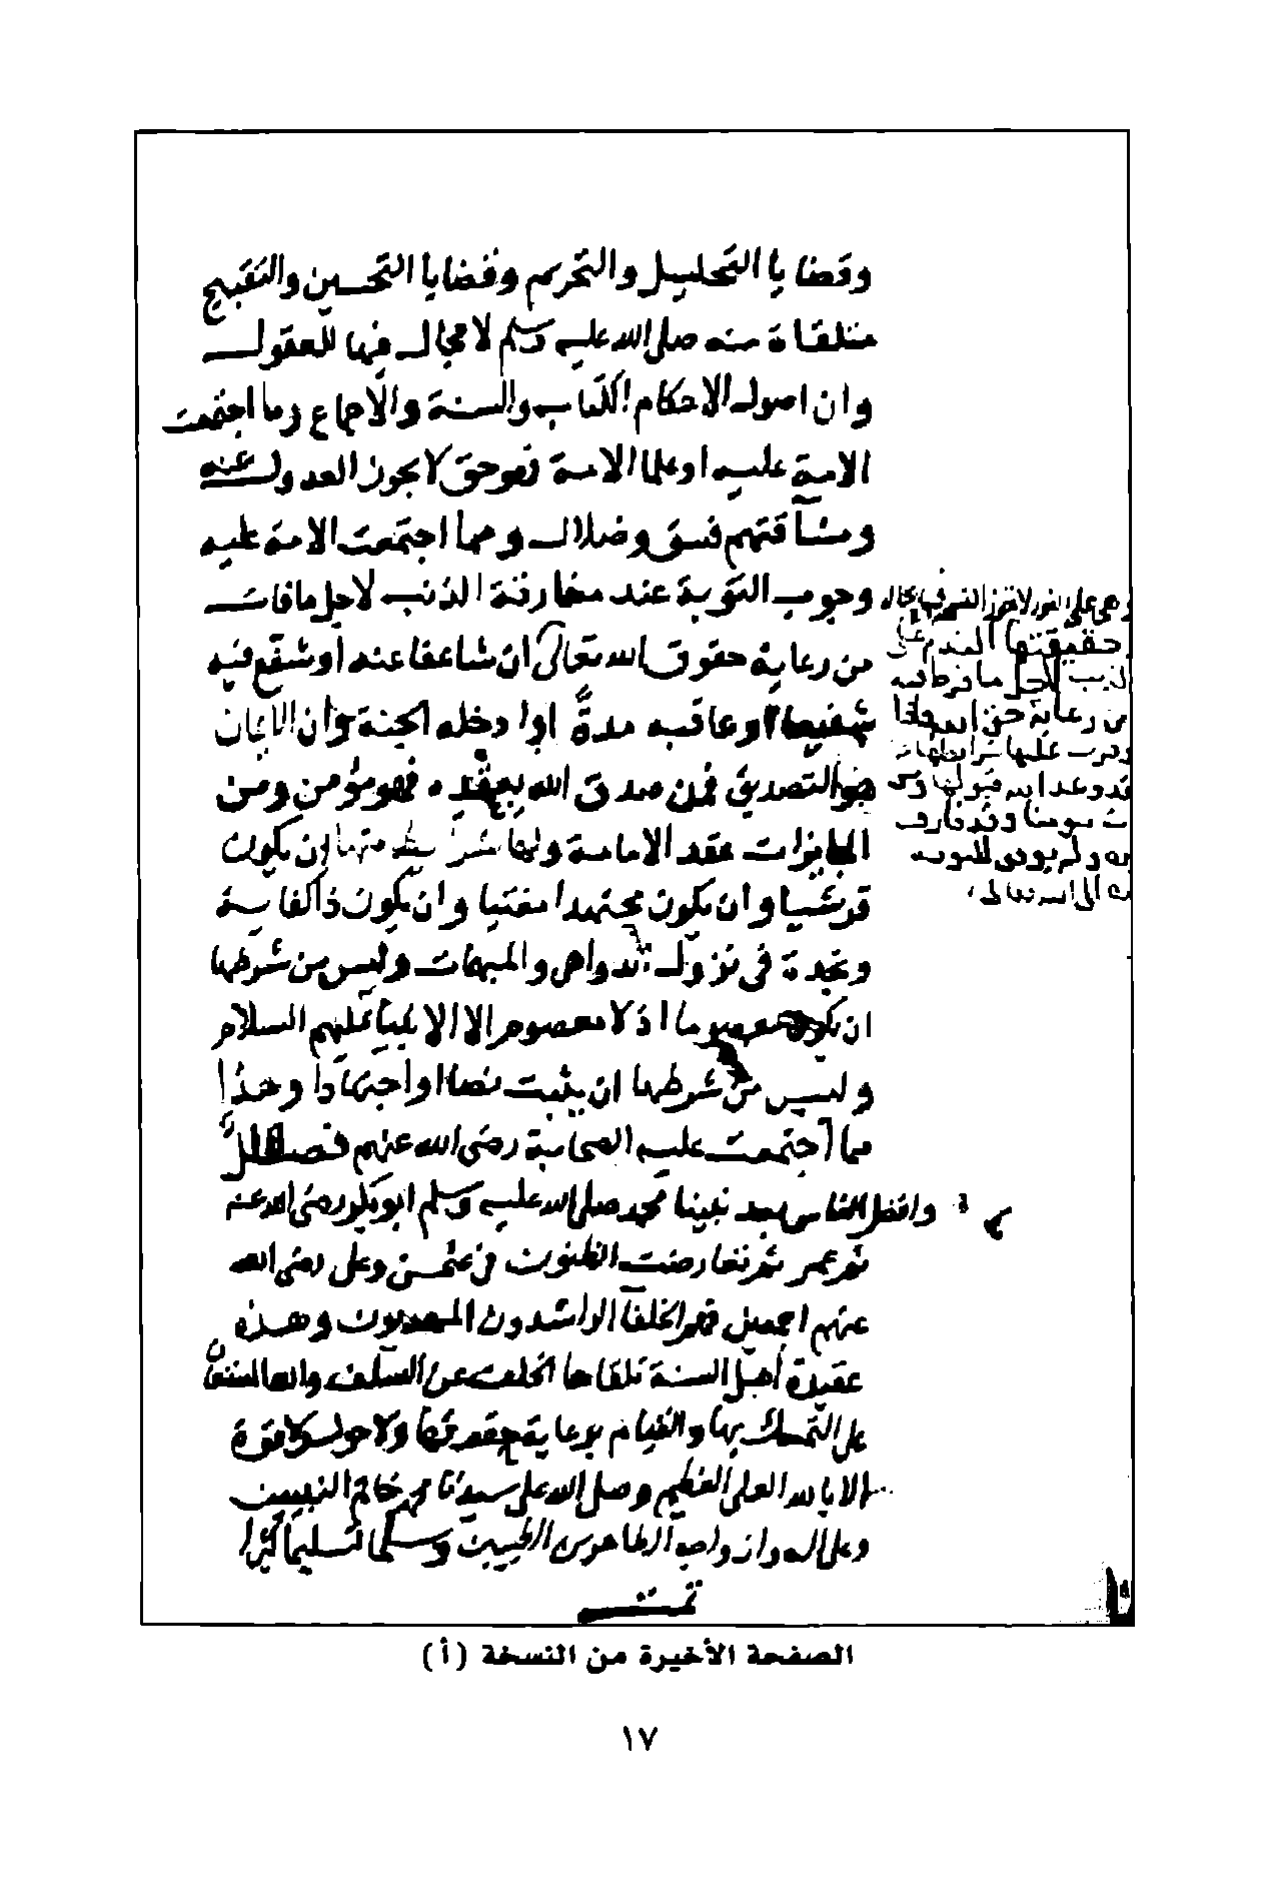 وقضايا التحليل والتحريم وقضايا التحسين والتقبيح
متلقاة منه صلى الله عليه وسلم لا مجال فيها للعقول
وان اصول الاحكام الكتاب والسنة والاجماع وما اجتمعت
الامة عليه او علما الامة فهو حق لا يجوز العدول عنه
ومشاقتهم فسق وضلال ومما اجتمعت الامة عليه
وجوب التوبة عند مقارنة الذنب لاجل ما فات
من رعاية حقوق الله تعالى ان شا عفا عنه او شفع فيه
شفيعا او عاقبه مدة ادخله الجنة وان الايمان
هو التصديق فمن صدق الله بعقده فهو مؤمن ومن
الجايزات عقد الامامة ولها شرايط منها ان يكون
قرشيا وان يكون مجتهدا مفتيا وان يكون ذا كفاية
ونجدة فى نزول الدواهى والمبهات وليس من شرطها
ان يكون معصوما اذ لا معصوم الا الانبيا عليهم السلام
وليس من شرطها ان يثبت نصا او اجتهادا وهذا
مما اجتمعت عليه الصحابة رضى الله عنهم فصل
وافضل الناس بعد نبينا محمد صلى الله عليه وسلم ابو بكر رضى الله عنه
ثم عمر ثم تعارضت الظنون فى عثمن وعلى رضى الله
عنهم اجمعين فهم الخلفا الراشدون المهديون وهذه
عقيدة أهل السنة تلقاها الخلف عن السلف والله المستعان
على التمسك بها والقيام برعاية حقوقها ولا حول ولا قوة
الا بالله العلى العظيم وصلى الله على سيدنا محمد خاتم النبيين
وعلى اله وازواجه الطاهرين الطيبين وسلم تسليما كثيرا
تمت
وهى على الفور
وحقيقتها الندم على
الذنب لاجل ما فرط فيه
من رعاية حق الله واذا
قد وعد الله قبولها
به ولم يودى للتوبه
الى الله تعالى
الصفحة الأخيرة من النسخة (أ)
١٧